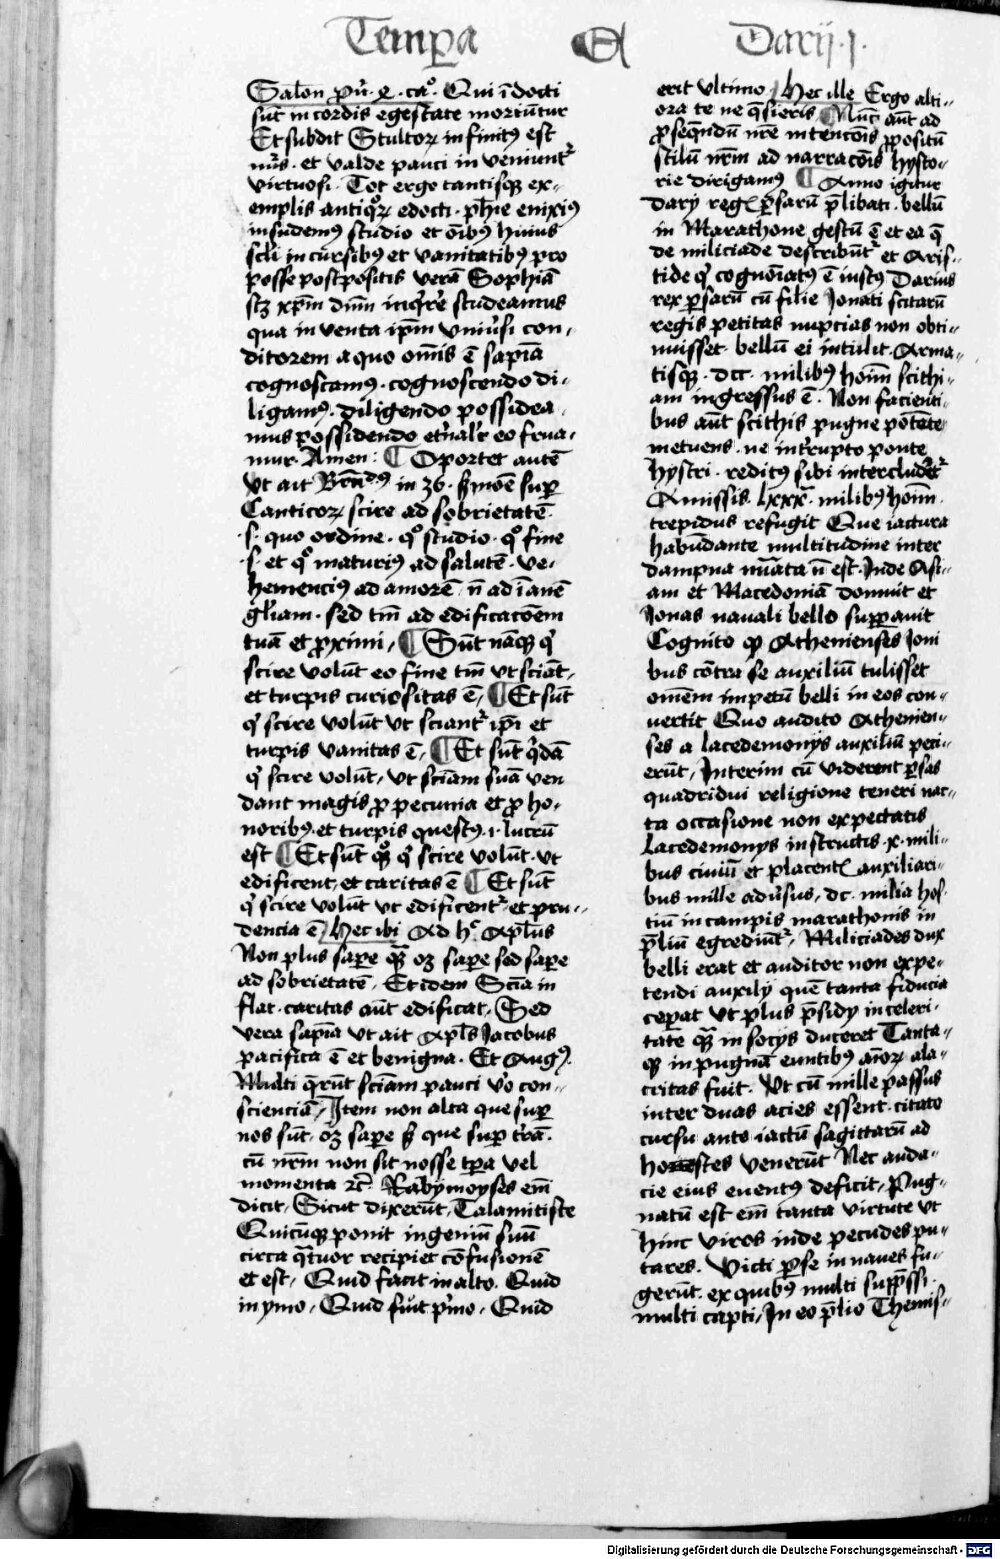 Tempora Et Darij .j.
Salon pru̅. x. cao. Qui i̅docti
su̅t in cordis egestate moriu̅tur
Et subdit Stultoꝝ infinitꝯ est
nu̅s. et valde pauci inveniunt᷑
virtuosi. Tot ergo tantisqꝫ ex-
emplis antiqoꝝ edocti. ph̅ie enixiꝯ
insudemꝯ studio et o̅ibꝯ huius
scl̅i incursibꝯ et vanitatibꝯ pro
posse postpositis vera̅ Sophia̅
scꝫ xp̅m dn̅m inq̅rere studeamus
qua inventa ip̅m vniu̅si con-
ditorem a quo om̅is e̅ sapi̅a
cognoscamꝯ. cognoscendo di-
ligamꝯ. diligendo possidea-
mus possidendo et̅nal̅r eo frua-
mur. Amen: ¶ Oportet aute̅
vt ait Brn̅dꝯ in 36. s̅moe̅ sup̱
Canticoꝝ scire ad sobrietate̅
.s. quo ordine. qo studio. qo fine
.s. et qo maturiꝯ ad salute̅. ve-
hemenciꝯ ad amore̅. n̅ ad i̅ane̅
gl̅iam. sed tm̅ ad edificaco̅em
tua̅ et ꝓximi, ¶ Su̅t na̅qꝫ q̇
scire volu̅t eo fine tm̅ vt scia̅t.
et turpis curiositas e̅, ¶ Et su̅t
q̇ scire volu̅t vt sciant᷑ ip̅i et
turpis vanitas e̅, ¶ Et su̅t q̇da̅
q̇ scire volu̅t, vt scia̅m sua̅ ven
dant magis ꝓ pecunia et ꝓ ho-
noribꝯ. et turpis questꝯ .i. lucru̅
est ¶ Et su̅t qꝫ q̇ scire volu̅t. vt
edificent, et caritas e̅ ¶ Et su̅t
q̇ scire volu̅t vt edificent᷑. et pru-
dencia e̅, Hec ibi Ad hc Apl̅us
Non plus sape̱ qꝫ oꝫ sape̱ sed sape̱
ad sobrietate̅, Et idem Sci̅a in
flat. caritas au̅t edificat, Sed
vera sapi̅a vt ait Apl̅s Jacobus
pacifica e̅ et benigna. Et Augꝯ.
Multi q̅ru̅t scia̅m pauci v̅o con-
sciencia̅, Item non alta que sup̱
nos su̅t, oꝫ sape̱ s̅ que sup̱ t̅ra̅.
cu̅ nr̅m non sit nosse tp̅a vel
momenta ⁊c̅. Rabymoyses em̅
dicit, Sicut dixeru̅t, Talamitiste
Quicu̅qꝫ ponit ingeniu̅ suu̅
circa q̅tuor recipiet co̅fusione̅
et est, Quid facit in alto. Quid
in ymo, Quid fu̅it p̅mo, Quid
erit vltimo, Hec ille Ergo alti-
ora te ne q̅sieris ¶ Nu̅c au̅t ad
ꝓseq̅ndu̅ nr̅e intenco̅is ꝓpositu̅
stilu̅ nr̅m ad narraco̅is hysto-
rie dirigamꝯ ¶ Anno igitur
Darÿ regꝭ p̱saru̅ p̅libati. bellu̅
in Marathone gestu̅ e̅ et ea q̅
de miliciade describu̅t᷑ et Aris-
tide q̇ cogno̅iatꝯ e̅ iustꝯ Darius
rex p̱saru̅ cu̅ filie Jonati scitaru̅
regis petitas nupcias non obti-
nuisset. bellu̅ ei intulit. Arma-
tisqꝫ. dcc. milibꝯ hoi̅m scithi-
am ingressus e̅. Non facienti-
bus au̅t scithis pugne po̅te̅te̅
metuens. ne int̅rupto ponte
hystri. reditꝯ sibi intercluder̅t᷑
Amissis. lxxx. milibꝯ hoi̅m.
trepidus refugit Que iactura
habu̅dante multitudine inter
dampna nu̅ata n̅ est. Inde Asi-
am et Macedonia̅ domuit et
Jonas navali bello sup̱auit
Cognito qꝫ Athenienses Joni
bus co̅tra se auxiliu̅ tulisset
om̅em impetu̅ belli in eos con-
uertit Quo audito Athenien-
ses a lacedemonÿs auxiliu̅ peci-
eru̅t, Interim cu̅ viderent p̱sas
quadridui religione teneri nac-
ta occasione non expectatis
Lacedemonÿs instructis. x. mili-
bus ciuiu̅ et placentꝭ auxiliari-
bus mille adu̅sus, dc. milia hos-
tiu̅ in campis marathonis in
p̅liu̅ egrediu̅t᷑, Miliciades dux
belli erat et auditor non expe-
tendi auxilÿ que̅ tanta fiducia
ceperat vt plus p̅sidÿ in celeri-
tate̅ qꝫ in socÿs duceret Tanta-
qꝫ in pugna̅ euntibꝯ ai̅oꝝ ala-
critas fuit. Vt cu̅ mille passus
inter duas acies essent. citato
cursu ante iactu̅ sagittaru̅ ad
hostes veneru̅t Nec auda-
cie eius euentꝯ deficit, Pug-
natu̅ est em̅ tanta virtute vt
hinc viros inde pecudes pu-
tares. Victi p̱se in naues fu-
geru̅t. ex quibꝯ multi supp̅ssi.
multi capti, In eo p̅lio Themis-
Digitalisierung gefördert durch die Deutsche Forschungsgemeinschaft - DFG